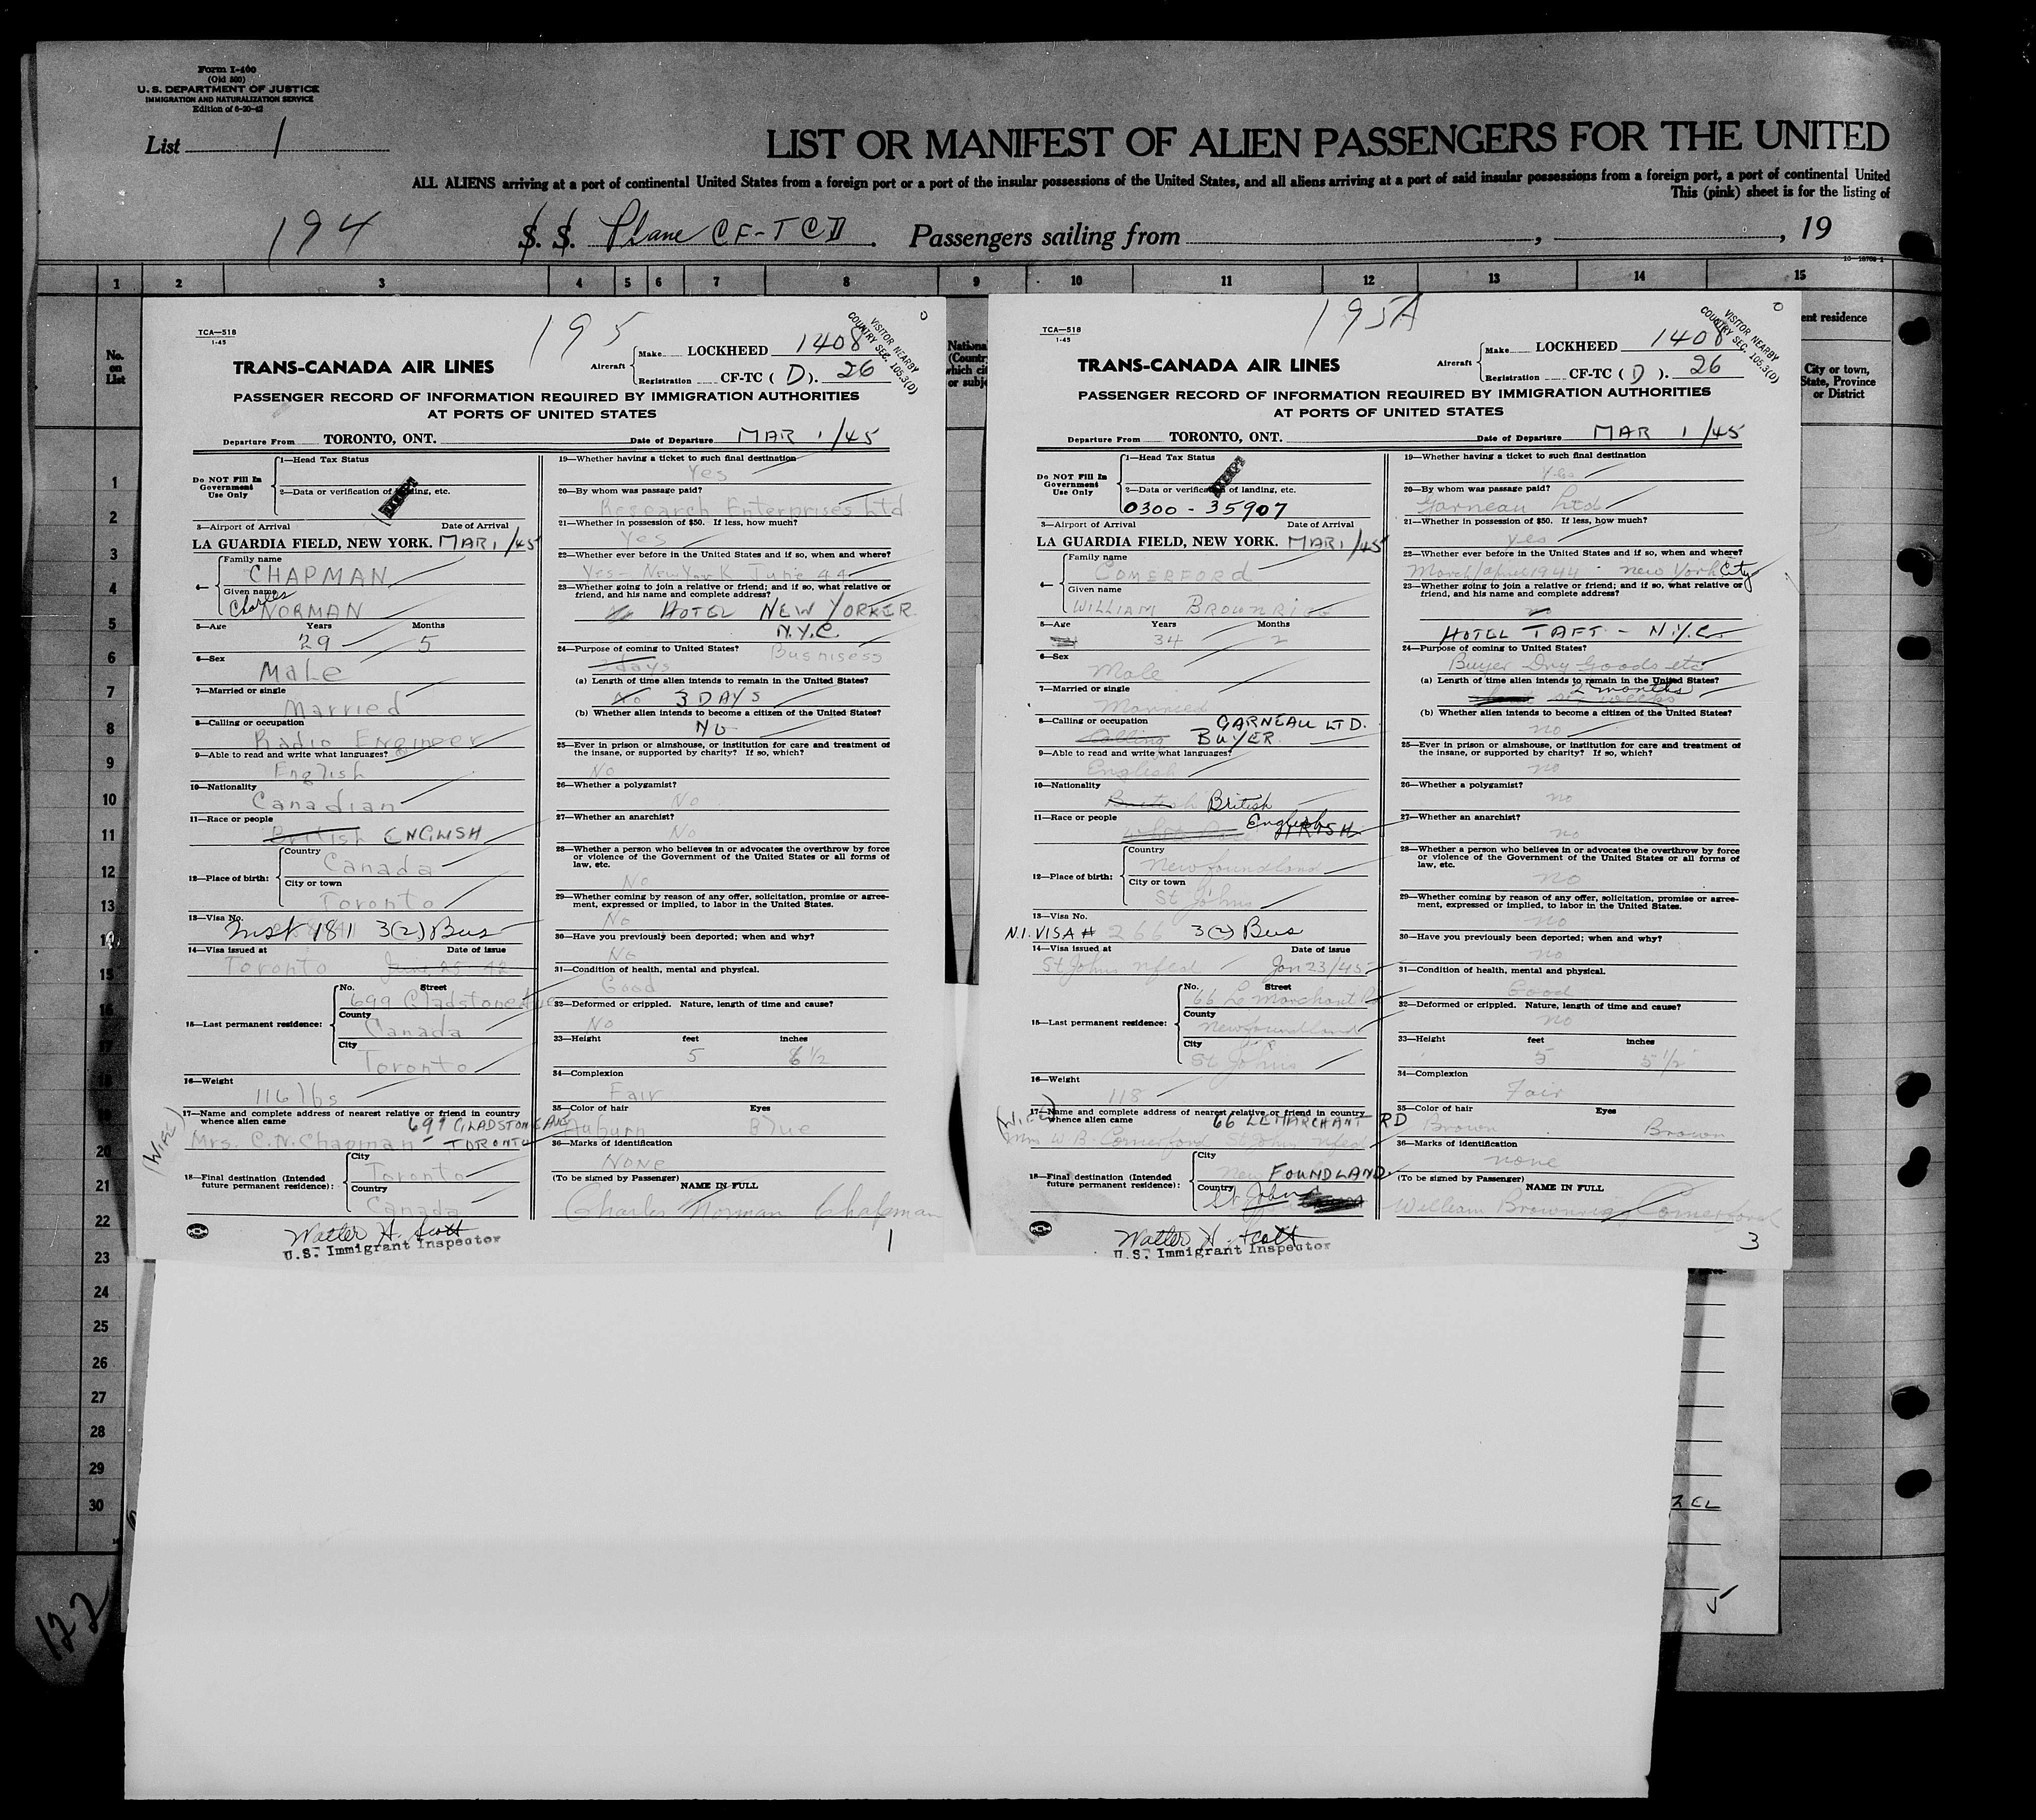 Form I-400
(Old 500)
U. S. DEPARTMENT OF JUSTICE
IMMIGRATION AND NATURALIZATION SERVICE
Edition of 6-20-42
List 1
LIST OR MANIFEST OF ALIEN PASSENGERS FOR THE UNITED
ALL ALIENS arriving at a port of continental United States from a foreign port or a port of the insular possessions of the United States, and all aliens arriving at a port of said insular possessions from a foreign port, a port of continental United
This (pink) sheet is for the listing of
194 S. S. Plane CF-TCD. Passengers sailing from , , 19
1 2 3 4 5 6 7 8 9 10 11 12 13 14 15
No.
on
List
1
2
3
4
5
6
7
8
9
10
11
12
13
14
15
16
17
18
19
20
21
22
23
24
25
26
27
28
29
30
122
195
TCA—518
1-45
VISITOR NEARBY
COUNTRY SEC. 105.3(D)
TRANS-CANADA AIR LINES
Aircraft Make LOCKHEED 1408
Registration CF-TC ( D ). 26
PASSENGER RECORD OF INFORMATION REQUIRED BY IMMIGRATION AUTHORITIES
AT PORTS OF UNITED STATES
Departure From TORONTO, ONT. Date of Departure MAR 1/45
Do NOT Fill In
Government
Use Only
1—Head Tax Status
2—Data or verification of landing, etc.
3—Airport of Arrival Date of Arrival
LA GUARDIA FIELD, NEW YORK. MAR 1/45
4— Family name
CHAPMAN
Given name
Charles NORMAN
5—Age Years Months
29 5
6—Sex
Male
7—Married or single
Married
8—Calling or occupation
Radio Engineer
9—Able to read and write what languages?
English
10—Nationality
Canadian
11—Race or people
British ENGLISH
12—Place of birth: Country
Canada
City or town
Toronto
13—Visa No.
1811 3(2) Bus
14—Visa issued at Date of issue
Toronto June 25-42
15—Last permanent residence: No. Street
699 Gladstone Ave
County
Canada
City
Toronto
16—Weight
116 lbs
17—Name and complete address of nearest relative or friend in country
whence alien came 699 GLADSTONE AVE
(WIFE) Mrs. C.N. Chapman - TORONTO
18—Final destination (Intended
future permanent residence): City
Toronto
Country
Canada
Walter H. Scott
U.S. Immigrant Inspector
19—Whether having a ticket to such final destination
Yes
20—By whom was passage paid?
Research Enterprises Ltd
21—Whether in possession of $50. If less, how much?
Yes
22—Whether ever before in the United States and if so, when and where?
Yes - New York June 44
23—Whether going to join a relative or friend; and if so, what relative or
friend, and his name and complete address?
No HOTEL NEW YORKER
N.Y.C.
24—Purpose of coming to United States? Busnisess
3 days
(a) Length of time alien intends to remain in the United States?
No 3 DAYS
(b) Whether alien intends to become a citizen of the United States?
No
25—Ever in prison or almshouse, or institution for care and treatment of
the insane, or supported by charity? If so, which?
No
26—Whether a polygamist?
No
27—Whether an anarchist?
No
28—Whether a person who believes in or advocates the overthrow by force
or violence of the Government of the United States or all forms of
law, etc.
No
29—Whether coming by reason of any offer, solicitation, promise or agree-
ment, expressed or implied, to labor in the United States.
No
30—Have you previously been deported; when and why?
No
31—Condition of health, mental and physical.
Good
32—Deformed or crippled. Nature, length of time and cause?
No
33—Height feet inches
5 6 1/2
34—Complexion
Fair
35—Color of hair Eyes
Auburn Blue
36—Marks of identification
NONE
(To be signed by Passenger) NAME IN FULL
Charles Norman Chapman
1
Nationa
(Country
which cit
or subje
195A
TCA—518
1-45
VISITOR NEARBY
COUNTRY SEC. 105.3(D)
TRANS-CANADA AIR LINES
Aircraft Make LOCKHEED 1408
Registration CF-TC ( D ). 26
PASSENGER RECORD OF INFORMATION REQUIRED BY IMMIGRATION AUTHORITIES
AT PORTS OF UNITED STATES
Departure From TORONTO, ONT. Date of Departure MAR 1/45
Do NOT Fill In
Government
Use Only
1—Head Tax Status
2—Data or verification of landing, etc.
0300 - 35907
3—Airport of Arrival Date of Arrival
LA GUARDIA FIELD, NEW YORK. MAR 1/45
4— Family name
COMERFORD
Given name
WILLIAM BROWNRIGG
5—Age Years Months
34 2
6—Sex
Male
7—Married or single
Married
8—Calling or occupation GARNEAU LTD.
BUYER
9—Able to read and write what languages?
English
10—Nationality
British British
11—Race or people
English IRISH
12—Place of birth: Country
Newfoundland
City or town
St Johns
13—Visa No.
N.I. VISA # 266 3(2) Bus
14—Visa issued at Date of issue
St Johns nfld Jan 23/45
15—Last permanent residence: No. Street
66 LeMarchant Rd
County
Newfoundland
City
St Johns
16—Weight
118
17—Name and complete address of nearest relative or friend in country
whence alien came 66 LEMARCHANT RD
(WIFE) Mrs W.B. Comerford St John nfld
18—Final destination (Intended
future permanent residence): City
New FOUNDLAND
Country
St Johns
Walter H. Scott
U.S. Immigrant Inspector
19—Whether having a ticket to such final destination
Yes
20—By whom was passage paid?
Garneau Ltd
21—Whether in possession of $50. If less, how much?
yes
22—Whether ever before in the United States and if so, when and where?
March/April 1944 - new York City
23—Whether going to join a relative or friend; and if so, what relative or
friend, and his name and complete address?
no
HOTEL TAFT - N.Y.C.
24—Purpose of coming to United States?
Buyer Dry Goods etc
(a) Length of time alien intends to remain in the United States?
2 months
(b) Whether alien intends to become a citizen of the United States?
no
25—Ever in prison or almshouse, or institution for care and treatment of
the insane, or supported by charity? If so, which?
no
26—Whether a polygamist?
no
27—Whether an anarchist?
no
28—Whether a person who believes in or advocates the overthrow by force
or violence of the Government of the United States or all forms of
law, etc.
no
29—Whether coming by reason of any offer, solicitation, promise or agree-
ment, expressed or implied, to labor in the United States.
no
30—Have you previously been deported; when and why?
no
31—Condition of health, mental and physical.
Good
32—Deformed or crippled. Nature, length of time and cause?
no
33—Height feet inches
5 5 1/2
34—Complexion
Fair
35—Color of hair Eyes
Brown Brown
36—Marks of identification
none
(To be signed by Passenger) NAME IN FULL
William Brownrigg Comerford
3
ent residence
City or town,
State, Province
or District